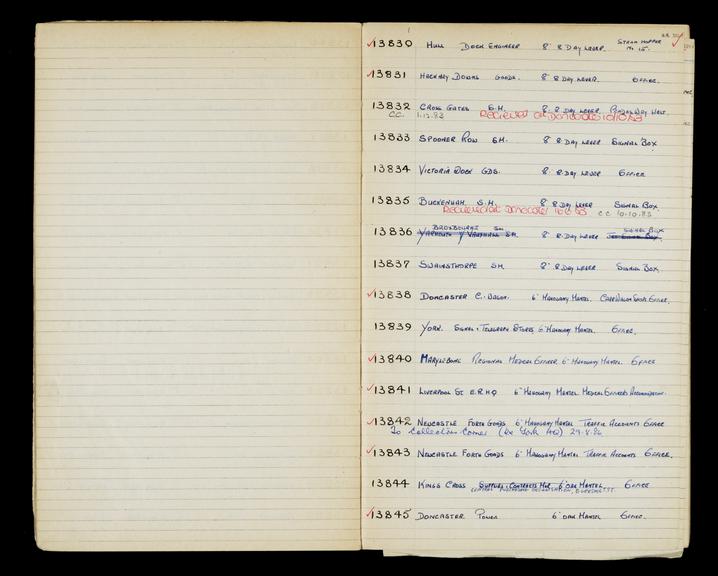 13830 Hull Dock Engineer 8" 8 Day Lever. Steam Hopper No 15.
13831 Hackney Downs Goods. 8" 8 Day Lever. Office.
13832 Cross Gates S.M. 8" 8 Day Lever.
C.C. 1.12.83 Recieved at Doncaster 10/10/83
13833 Spooner Row SM. 8" 8 Day Lever Signal Box
13834 Victoria Dock Gds. 8" 8 Day Lever Office
13835 Buckenham S.M. 8" 8 Day Lever Signal Box.
Recieved at Doncaster C.C. 10.10.83
Broxbourne SM Signal Box
13836 Yarmouth Vauxhall SM. 8" 8 Day Lever
13837 Swainsthorpe SM. 8" 8 Day Lever Signal Box.
13838 Doncaster C. Wagon. 6" Mahogany Mantel. Office.
13839 York. Signal & Telegraph Stores 6" Mahogany Mantel. Office.
13840 Marylebone Regional Medical Officer 6" Mahogany Mantel Office
13841 Liverpool St E.R.H.Q 6" Mahogany Mantel Medical Officers Accommodation.
13842 Newcastle Forth Goods 6" Mahogany Mantel Traffic Accounts Office
To Collectors Corner (ex York HQ) 29.8.86
13843 Newcastle Forth Goods 6" Mahogany Mantel Traffic Accounts Office.
13844 Kings Cross Supplies & Contracts Mgr. 6" Oak Mantel Office
Central Purchasing Organisation,
13845 Doncaster Power 6" Oak Mantel Office.